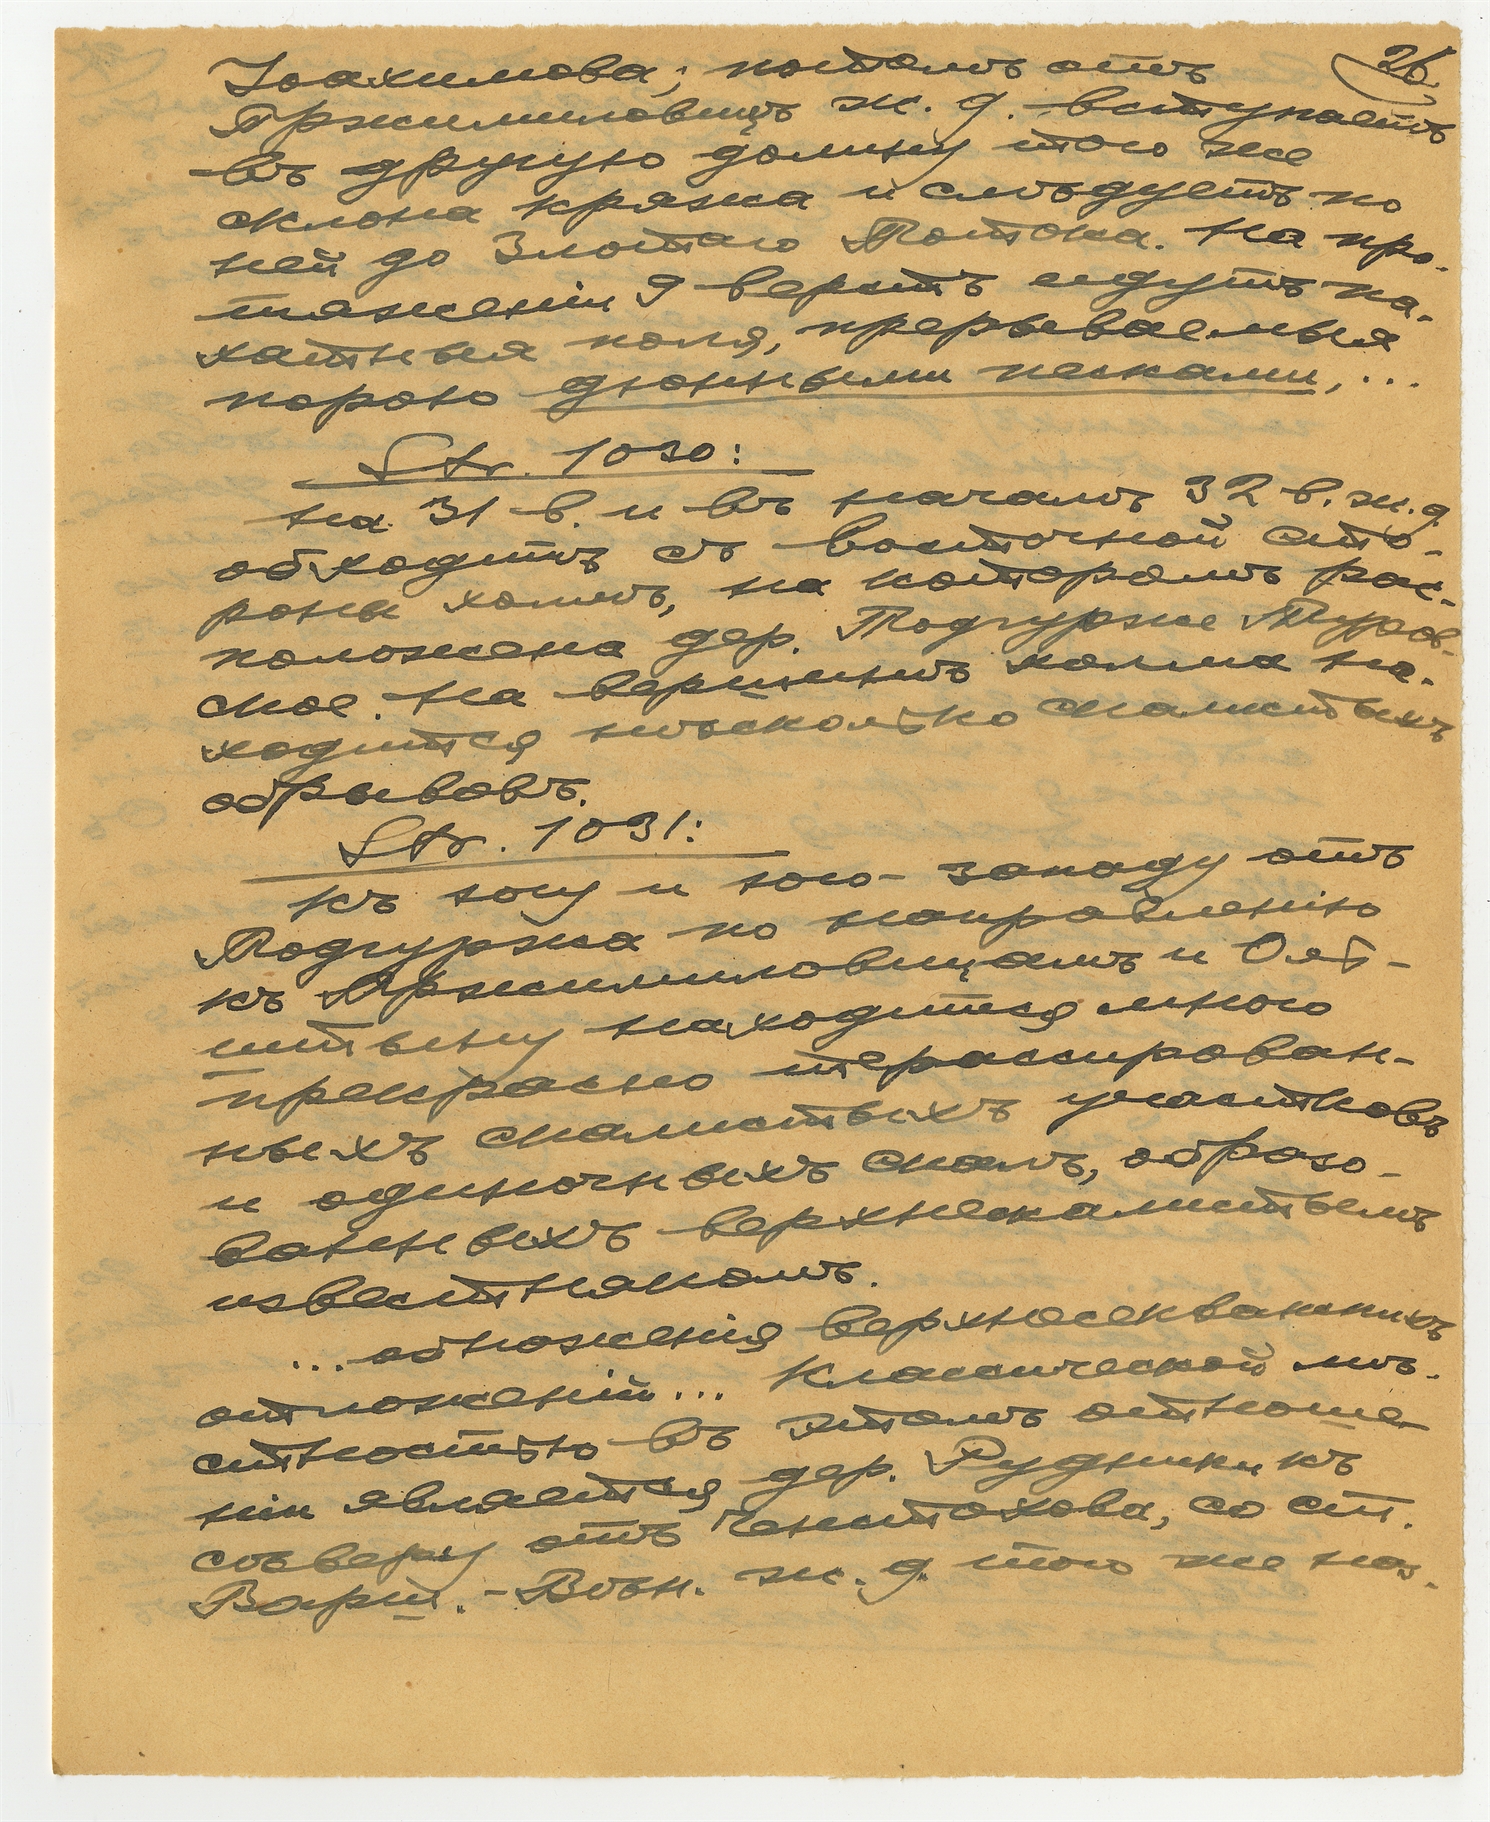 26.
Іоахимова; потомъ отъ
Пржимиловицъ ж. д. вступаетъ
въ другую долину того же
склона кряжа и слѣдуетъ по
ней до Злотаго Потока. На про-
тяженіи 9 верстъ идутъ па-
хатныя поля, прерываемыя
порою дюнными песками, ...
Str. 1030:
На 31 в. и въ началѣ 32 в. ж. д.
обходитъ съ восточной сто-
роны холмъ, на которомъ рас-
положена дер. Подгурже Туров-
ское. На вершинѣ холма на-
ходится нѣсколько скалистыхъ
обрывовъ.
Str. 1031:
Къ югу и юго-западу отъ
Подгуржа по направленію
къ Пржимиловицамъ и Оль-
штыну находится много
прекрасно терасирован-
ныхъ скалистыхъ участковъ
и одиночныхъ скалъ, образо-
ванныхъ верхнескалистымъ
известнякомъ.
... обнаженія верхнесекванскихъ
отложеній... Классической мѣ-
стностью въ этомъ отноше-
ніи является дер. Рудники къ
сѣверу отъ Ченстохова, со ст.
Варш.-Вѣн. ж. д. того же наз-